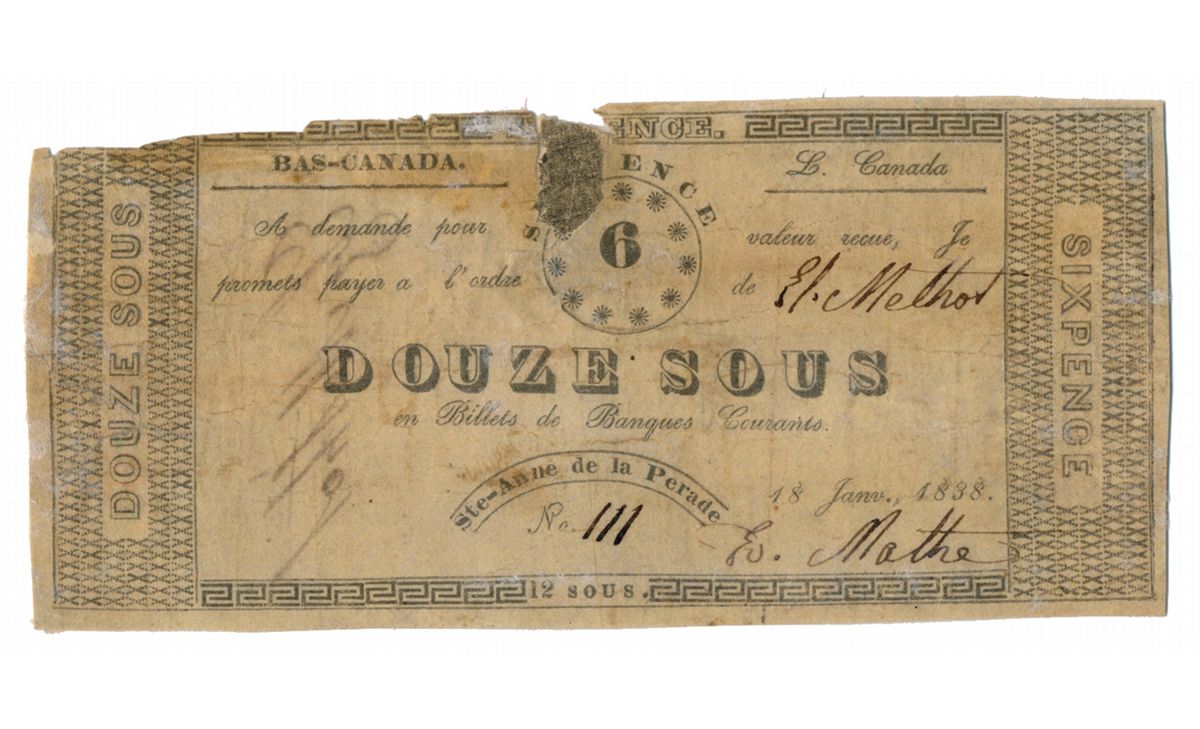 ENCE.
BAS-CANADA.
L. Canada
ENCE
6
A demande pour valeur recue, Je
promets payer a l'ordre de El. Methot
DOUZE SOUS
en Billets de Banques Courants.
Ste-Anne de la Perade
18 Janv., 1838.
No. 111
Ed. Mathe
12 SOUS.
DOUZE SOUS
SIXPENCE